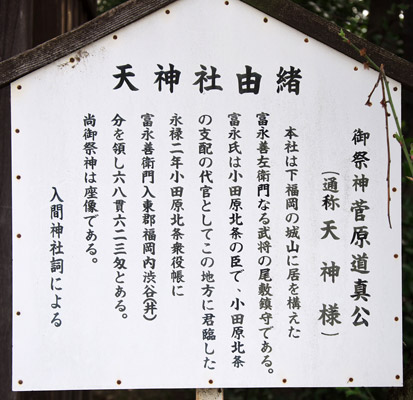 天神社由緒
御祭神菅原道真公
(通称 天神様)
本社は下福岡の城山に居を構えた
富永善左衛門なる武将の尾敷鎮守である。
富永氏は小田原北条の臣で、小田原北条
の支配の代官としてこの地方に君臨した
永禄二年小田原北条衆役帳に
富永善衛門入東郡福岡内渋谷(井)
分を領し六八貫六二三匁とある。
尚御祭神は座像である。
入間神社詞による